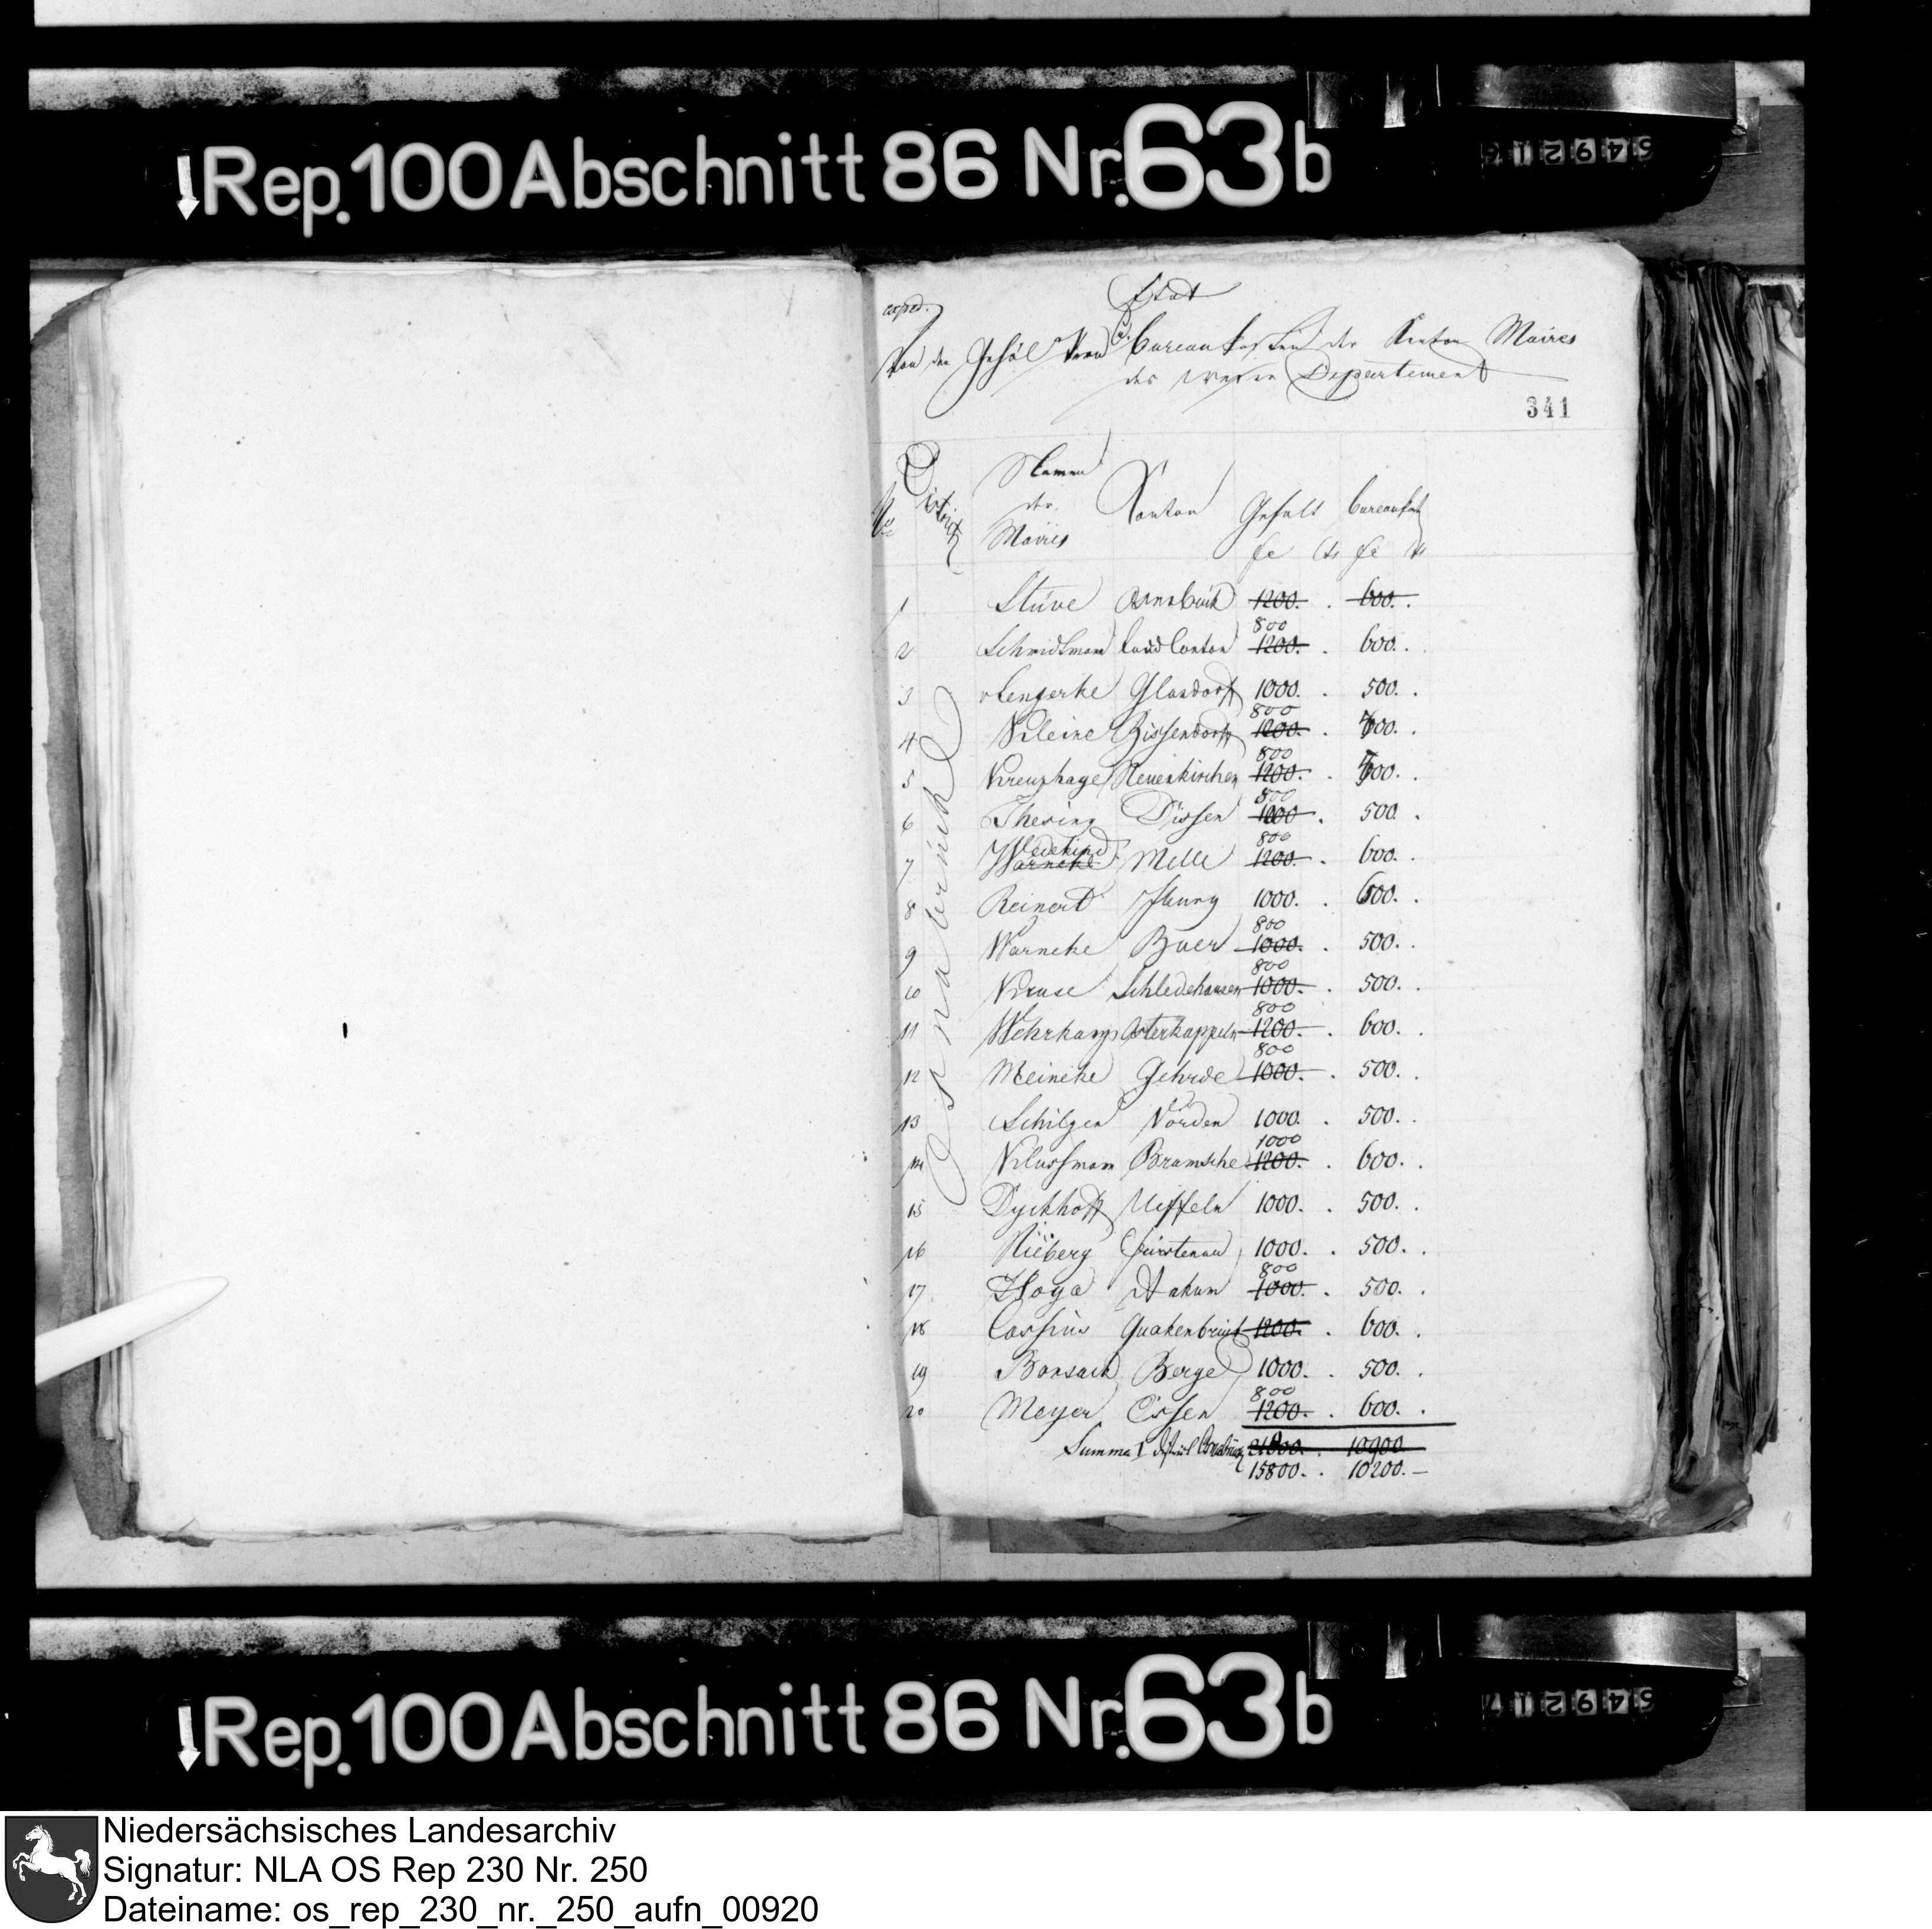 Rep. 100 Abschnitt 86 Nr. 63 b
549216
exped.
Etat
von den Gehältern u. bureaukosten der Kanton Maires
des Weser Departement
341
No District Namen der Maires Kanton Gehalt bureaukost
fc Cts fc Cts
Osnabrück
1 Stüve Osnabrück 1200. . 600. .
800
2 Schmidtmann Land Canton 1200. . 600. .
3 v Lengerke Glandorff 1000. . 500. .
800
4 Kleine Bissendorff 1200. . 500. .
800
5 Kreuzhage Neuenkirchen 1200. . 500. .
800
6 Thesing Dissen 1200 . 500 .
Wedekind 800
7 Warneke Melle 1200. . 600. .
8 Reinert Iburg 1000. . 600. .
800
9 Warneke Buer 1000. . 500. .
800
10 Kruse Schledehausen 1000. . 500. .
800
11 Wehrkamp Osterkappeln 1200. . 600. .
800
12 Meineke Gehrde 1000. . 500. .
13 Schilgen Vörden 1000. . 500. .
1000
14 Klussmann Bramsche 1200. . 600. .
15 Dyckhoff Ueffeln 1000. . 500. .
16 Nieberg Fürstenau 1000. . 500. .
800
17 Hoya Ankum 1000. . 500. .
18 Cassius Quakenbrück 1200. . 600. .
19 Berge 1000. . 500. .
800
20 Meyer Essen 1200. . 600. .
Summa I District Osnabrück 21800. . 10900.
15800. . 10200. —
Rep. 100 Abschnitt 86 Nr. 63 b
549217
Niedersächsisches Landesarchiv
Signatur: NLA OS Rep 230 Nr. 250
Dateiname: os_rep_230_nr._250_aufn_00920